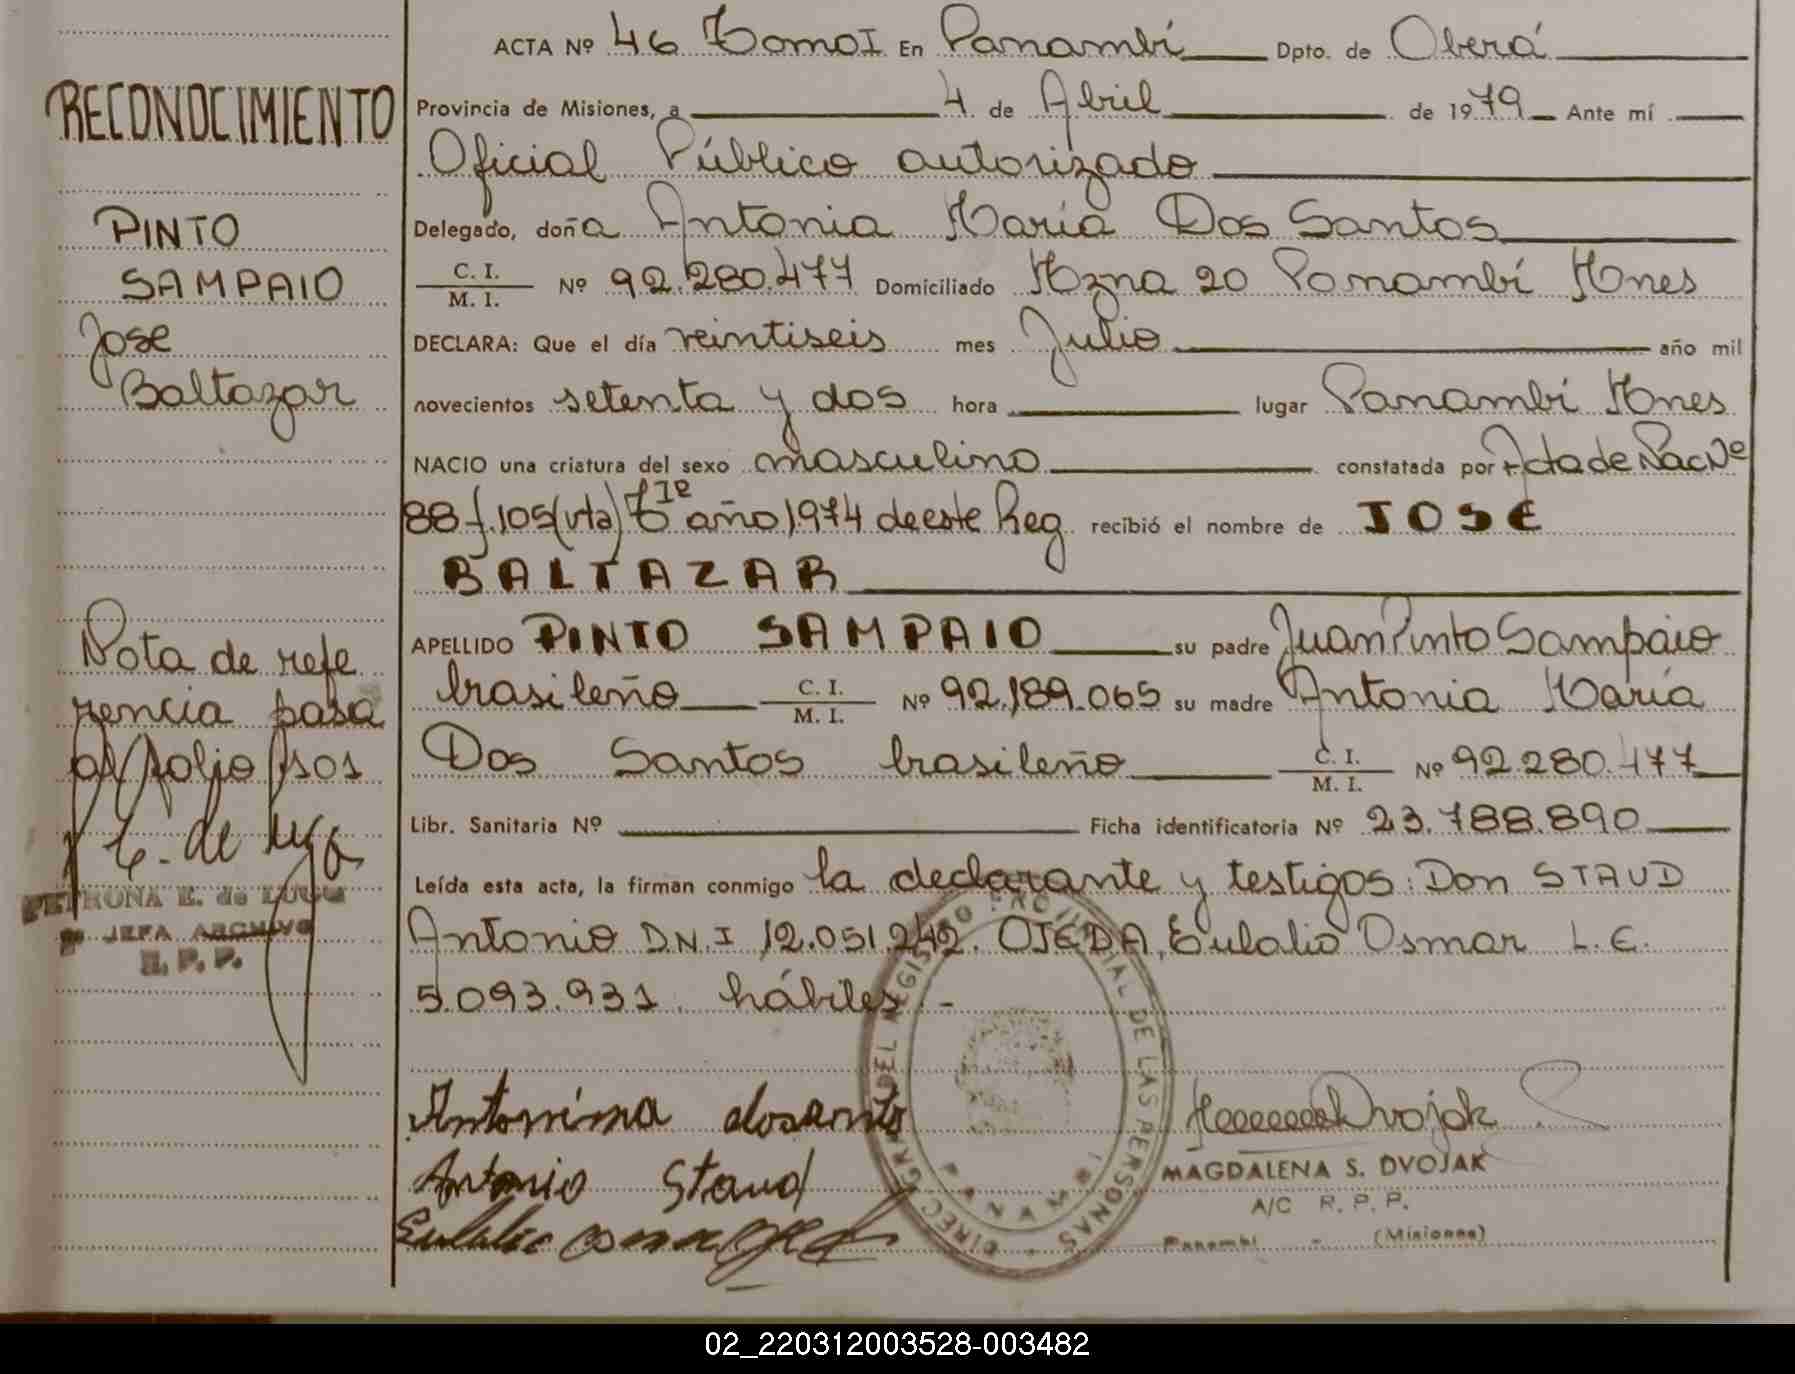 RECONOCIMIENTO
PINTO
SAMPAIO
Jose
Baltazar
Nota de refe
rencia pasa
al folio 101
PETRONA E. de LUGO
JEFA ARCHIVO
R. P. P.
ACTA Nº 46 Tomo I En Panambí Dpto. de Oberá
Provincia de Misiones, a 4 de Abril de 1979 Ante mí
Oficial Público autorizado
Delegado, doña Antonia María Dos Santos
C. I. / M. I. Nº 92.280.477 Domiciliado Mzna 20 Panambí Mnes
DECLARA: Que el día veintiseis mes Julio año mil
novecientos setenta y dos hora lugar Panambí Mnes
NACIO una criatura del sexo masculino constatada por Acta de Nac Nº
88 f. 105 (vta) Tº Iº año 1974 de este Reg recibió el nombre de JOSE
BALTAZAR
APELLIDO PINTO SAMPAIO su padre Juan Pinto Sampaio
brasileño C. I. / M. I. Nº 92.189.065 su madre Antonia María
Dos Santos brasileño C. I. / M. I. Nº 92.280.477
Libr. Sanitaria Nº Ficha identificatoria Nº 23.788.890
Leída esta acta, la firman conmigo la declarante y testigos: Don STAUD
Antonio D.N.I 12.051.242. OJEDA, Eulalio Osmar L.E.
5.093.931. hábiles.-
DIREC. GRAL DEL REGISTRO PROVINCIAL DE LAS PERSONAS
PANAMBI
Antonima dosanto
Antonio Staud
Dvojak
MAGDALENA S. DVOJAK
A/C R. P. P.
Panambí - (Misiones)
02_220312003528-003482